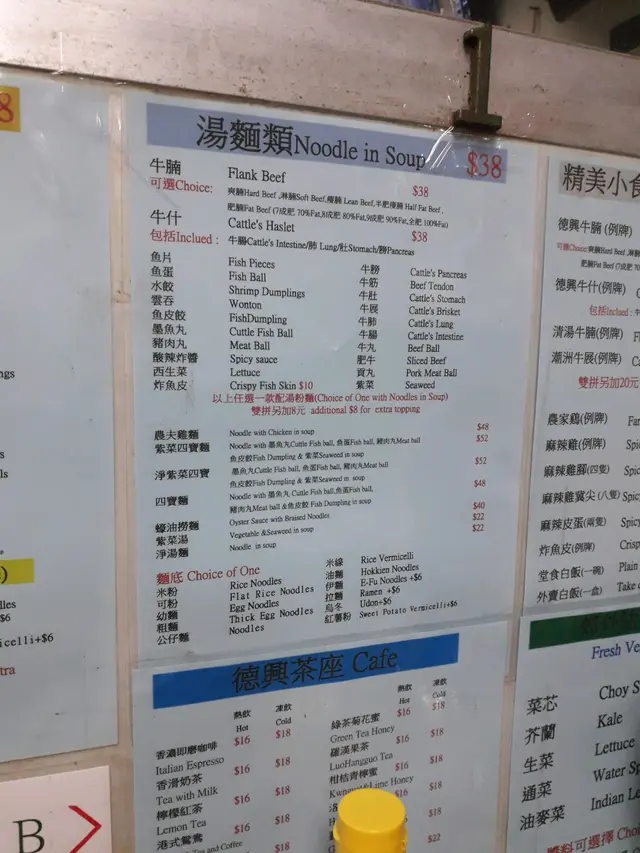 湯麵類Noodle in Soup $38
牛腩 Flank Beef $38
可選Choice: 爽腩Hard Beef ,淋腩Soft Beef,瘦腩 Lean Beef,半肥瘦腩 Half Fat Beef ,
肥腩Fat Beef (7成肥 70%Fat,8成肥 80%Fat,9成肥 90%Fat,全肥 100%Fat)
牛什 Cattle's Haslet $38
包括Inclued : 牛腸Cattle's Intestine/肺 Lung/肚Stomach/膀Pancreas
魚片 Fish Pieces 牛膀 Cattle's Pancreas
魚蛋 Fish Ball 牛筋 Beef Tendon
水餃 Shrimp Dumplings 牛肚 Cattle's Stomach
雲吞 Wonton 牛展 Cattle's Brisket
魚皮餃 FishDumpling 牛肺 Cattle's Lung
墨魚丸 Cuttle Fish Ball 牛腸 Cattle's Intestine
豬肉丸 Meat Ball 牛丸 Beef Ball
酸辣炸醬 Spicy sauce 肥牛 Sliced Beef
西生菜 Lettuce 貢丸 Pork Meat Ball
炸魚皮 Crispy Fish Skin $10 紫菜 Seaweed
以上任選一款配湯粉麵(Choice of One with Noodles in Soup)
雙拼另加8元 additional $8 for extra topping
農夫雞麵 Noodle with Chicken in soup $48
紫菜四寶麵 Noodle with 墨魚丸Cuttle Fish ball, 魚蛋Fish ball, 豬肉丸Meat ball $52
魚皮餃Fish Dumpling & 紫菜Seaweed in soup
淨紫菜四寶 墨魚丸Cuttle Fish ball, 魚蛋Fish ball, 豬肉丸Meat ball $52
魚皮餃Fish Dumpling & 紫菜Seaweed in soup
四寶麵 Noodle with 墨魚丸 Cuttle Fish ball,魚蛋Fish ball, $48
豬肉丸Meat ball &魚皮餃 Fish Dumpling in soup
蠔油撈麵 Oyster Sauce with Braised Noodles $40
紫菜湯 Vegetable &Seaweed in soup $22
淨湯麵 Noodle in soup $22
麵底 Choice of One
米粉 Rice Noodles 米線 Rice Vermicelli
可粉 Flat Rice Noodles 油麵 Hokkien Noodles
幼麵 Egg Noodles 伊麵 E-Fu Noodles +$6
粗麵 Thick Egg Noodles 拉麵 Ramen +$6
公仔麵 Noodles 烏冬 Udon+$6
紅薯粉 Sweet Potato Vermicelli+$6
德興茶座 Cafe
熱飲 凍飲 熱飲 凍飲
Hot Cold Hot Cold
香濃即磨咖啡 $16 $18
Italian Espresso
香滑奶茶 $16 $18
Tea with Milk
檸檬紅茶 $16 $18
Lemon Tea
港式鴛鴦 $16 $18
Tea and Coffee
綠茶菊花蜜 $16 $18
Green Tea Honey
羅漢果茶 $16 $18
LuoHangguo Tea
柑桔青檸蜜 $16 $18
Lime Honey
$18
$22
精美小食
德興牛腩 (例牌)
可選Choice:爽腩Hard Beef
肥腩Fat Beef (7成肥
德興牛什(例牌)
包括Inclued :
清湯牛腩(例牌)
潮洲牛展(例牌)
雙拼另加20元
農家鷄(例牌)
麻辣雞(例牌)
麻辣雞腳(四隻)
麻辣雞翼尖(八隻)
麻辣皮蛋(兩隻)
炸魚皮(例牌) Crisp
堂食白飯(一碗) Plain
外賣白飯(一盒) Take
Fresh Ve
菜芯 Choy S
芥蘭 Kale
生菜 Lettuce
通菜 Water Sp
油麥菜 Indian Le
醬料可選擇 Choi
8
ngs
ls
dles
$6
icelli+$6
tra
B